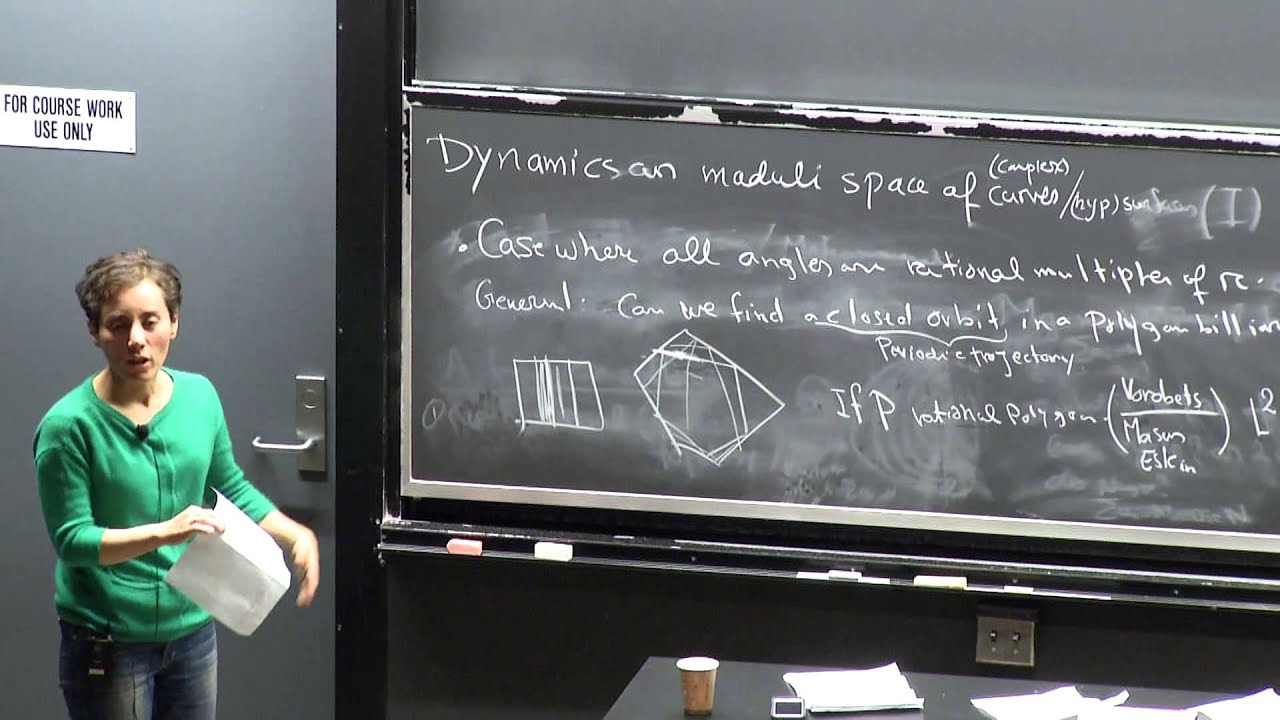 FOR COURSE WORK
USE ONLY
Dynamics on moduli space of (complex) curves/(hyp) surfaces (I)
• Case where all angles are rational multiples of π.
General: Can we find a closed orbit in a polygon
Periodic trajectory
If P rational polygon (Vorobets
Masur
Eskin)